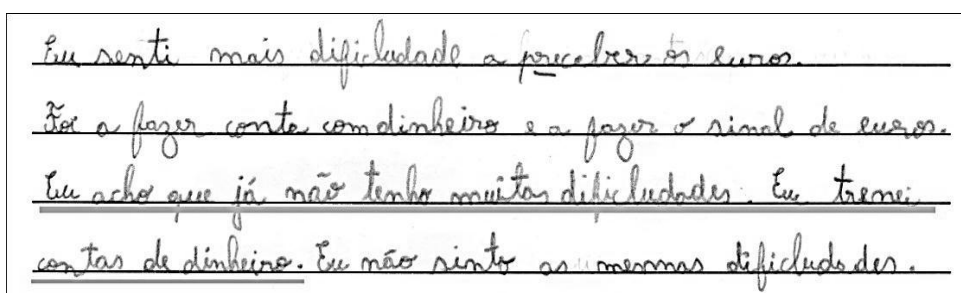 Eu senti mais dificludade a preceber os euros.
Foi a fazer conta com dinheiro e a fazer o sinal de euros.
Eu acho que já não tenho muitas dificludades. Eu trenei
contas de dinheiro. Eu não sinto as mesmas dificludades.